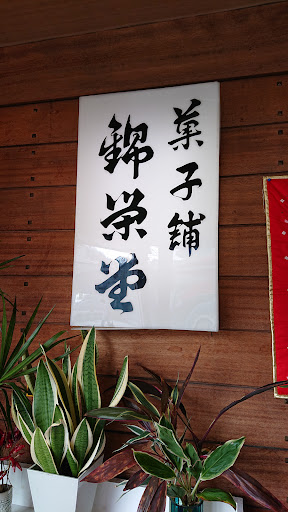 菓子舗
錦栄堂